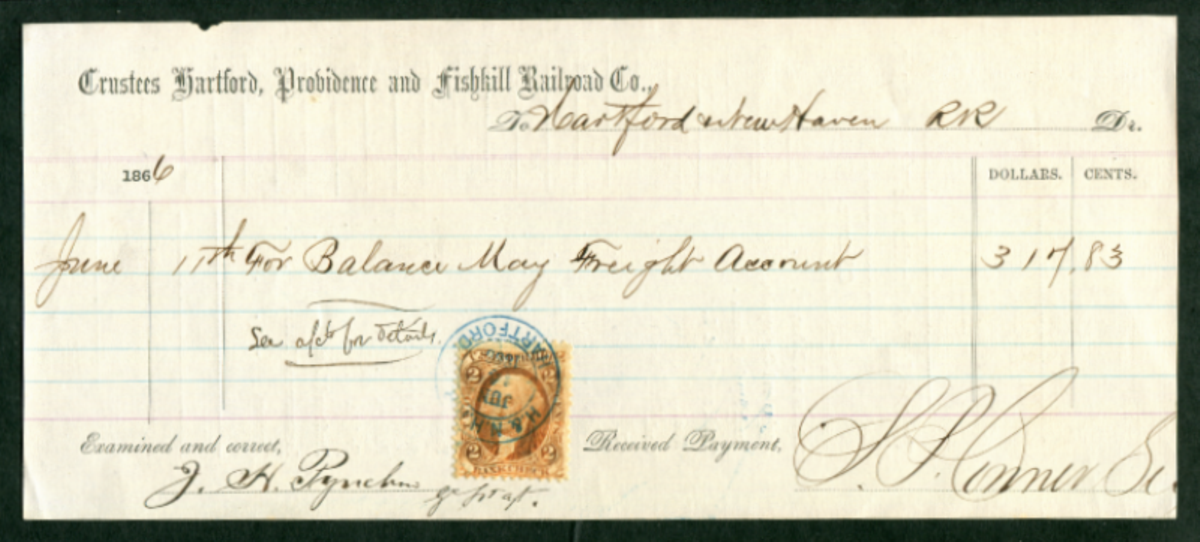 Trustees Hartford, Providence and Fishkill Railroad Co.,
To Hartford & New Haven RR Dr.
1866 DOLLARS. CENTS.
June 11th For Balance May Freight Account 317.83
See a/c for details.
HARTFORD.
2 2
2 2
BANK CHECK
Examined and correct,
J. H. Pynchon
Received Payment,